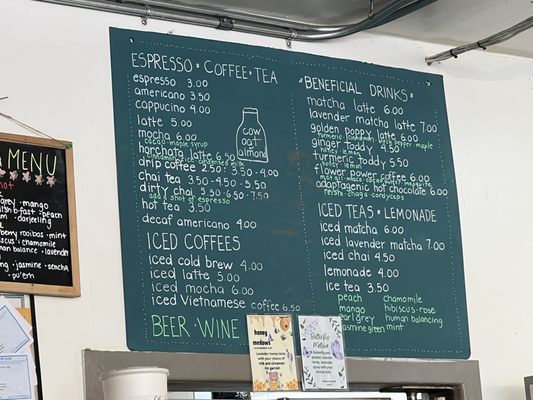 ESPRESSO · COFFEE · TEA
espresso 3.00
americano 3.50
cappucino 4.00
latte 5.00
mocha 6.00
cacao · maple syrup
horchata latte 6.50
drip coffee 2.50 · 3.50 · 4.00
chai tea 3.50 · 4.50 · 5.50
dirty chai 5.50 · 6.50 · 7.50
add a shot of espresso
hot tea 3.50
decaf americano 4.00
cow
oat
almond
ICED COFFEES
iced cold brew 4.00
iced latte 5.00
iced mocha 6.00
iced Vietnamese coffee 6.50
BEER · WINE
BENEFICIAL DRINKS
matcha latte 6.00
lavender matcha latte 7.00
golden poppy latte 6.00
ginger toddy 4.50
honey lemon
turmeric toddy 5.50
honey lemon
flower power coffee 6.00
adaptogenic hot chocolate 6.00
reishi · chaga · cordyceps
ICED TEAS · LEMONADE
iced matcha 6.00
iced lavender matcha 7.00
iced chai 4.50
lemonade 4.00
ice tea 3.50
peach chamomile
mango hibiscus · rose
earl grey human balancing
jasmine green mint
MENU
hot
grey · mango
ish b-fast · peach
darjeeling
berry rooibos · mint
iscus · chamomile
an balance · lavender
ng · jasmine · sencha
pu'erh
honey
meadows
Lavender honey latte
with your choice
of milk and
cinnamon
Butterfly
Matcha